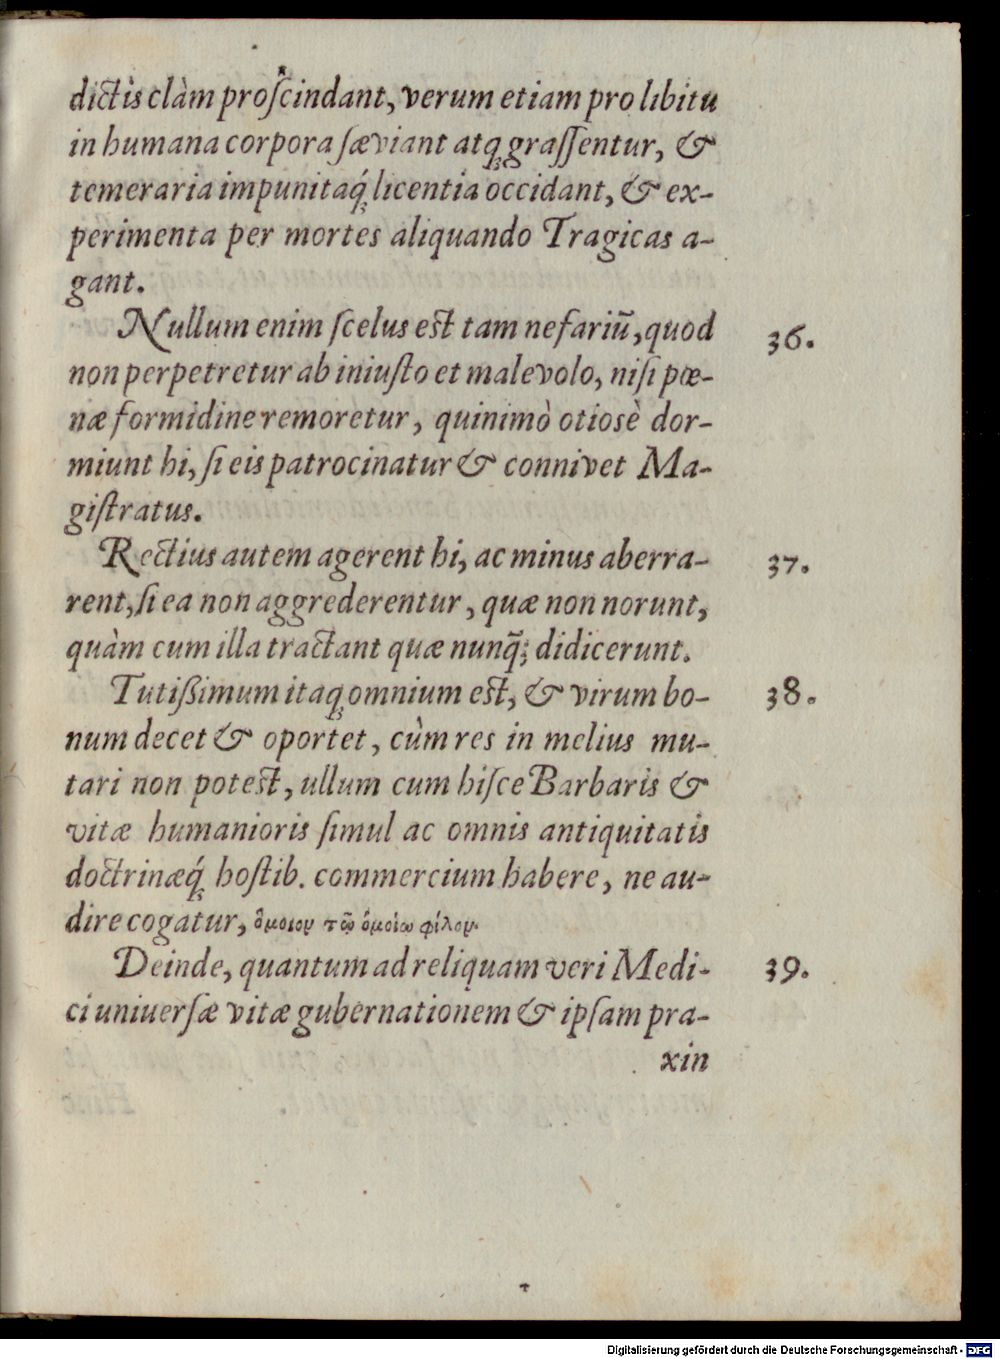 dictis clàm proſcindant, verum etiam pro libitu
in humana corpora ſæviant atq; graſſentur, &
temeraria impunitaq́; licentia occidant, & ex-
perimenta per mortes aliquando Tragicas a-
gant.
Nullum enim ſcelus est tam nefariũ, quod 36.
non perpetretur ab iniuſto et malevolo, niſi pœ-
næ formidine remoretur, quinimò otiosè dor-
miunt hi, ſi eis patrocinatur & connivet Ma-
giſtratus.
Rectius autem agerent hi, ac minus aberra- 37.
rent, ſi ea non aggrederentur, quæ non norunt,
quàm cum illa tractant quæ nunq̃; didicerunt.
Tutißimum itaq; omnium est, & virum bo- 38.
num decet & oportet, cùm res in melius mu-
tari non potest, ullum cum hiſce Barbaris &
vitæ humanioris ſimul ac omnis antiquitatis
doctrinæq́; hoſtib. commercium habere, ne au-
dire cogatur, ὅμοιον τῷ ὁμοίω φίλον.
Deinde, quantum ad reliquam veri Medi- 39.
ci uniuerſæ vitæ gubernationem & ipſam pra-
xin
Digitalisierung gefördert durch die Deutsche Forschungsgemeinschaft - DFG